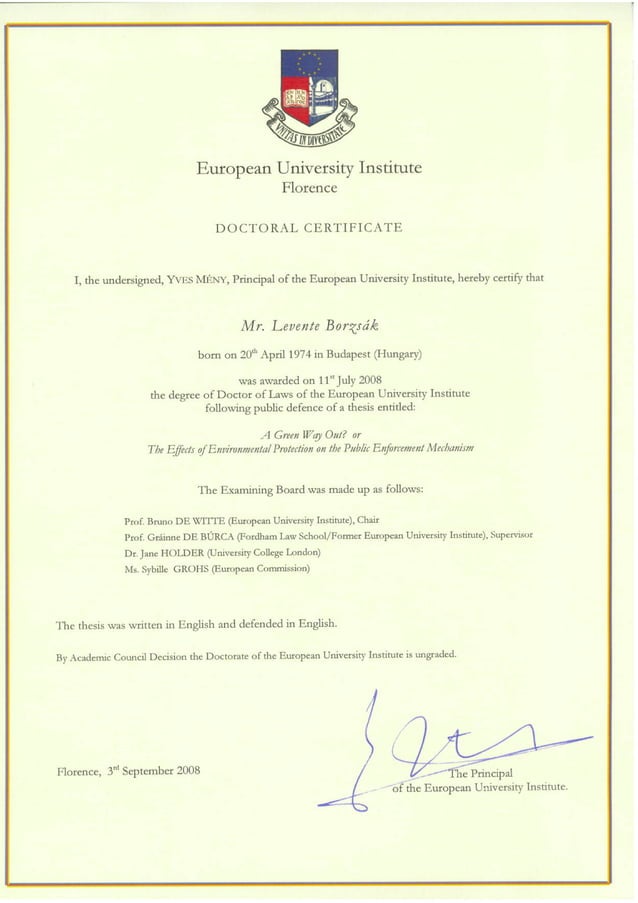 VNITAS IN DIVERSITATE
European University Institute
Florence
DOCTORAL CERTIFICATE
I, the undersigned, YVES MÉNY, Principal of the European University Institute, hereby certify that
Mr. Levente Borzsák
born on 20th April 1974 in Budapest (Hungary)
was awarded on 11st July 2008
the degree of Doctor of Laws of the European University Institute
following public defence of a thesis entitled:
A Green Way Out? or
The Effects of Environmental Protection on the Public Enforcement Mechanism
The Examining Board was made up as follows:
Prof. Bruno DE WITTE (European University Institute), Chair
Prof. Gráinne DE BÚRCA (Fordham Law School/Former European University Institute), Supervisor
Dr. Jane HOLDER (University College London)
Ms. Sybille GROHS (European Commission)
The thesis was written in English and defended in English.
By Academic Council Decision the Doctorate of the European University Institute is ungraded.
Florence, 3rd September 2008
The Principal
of the European University Institute.